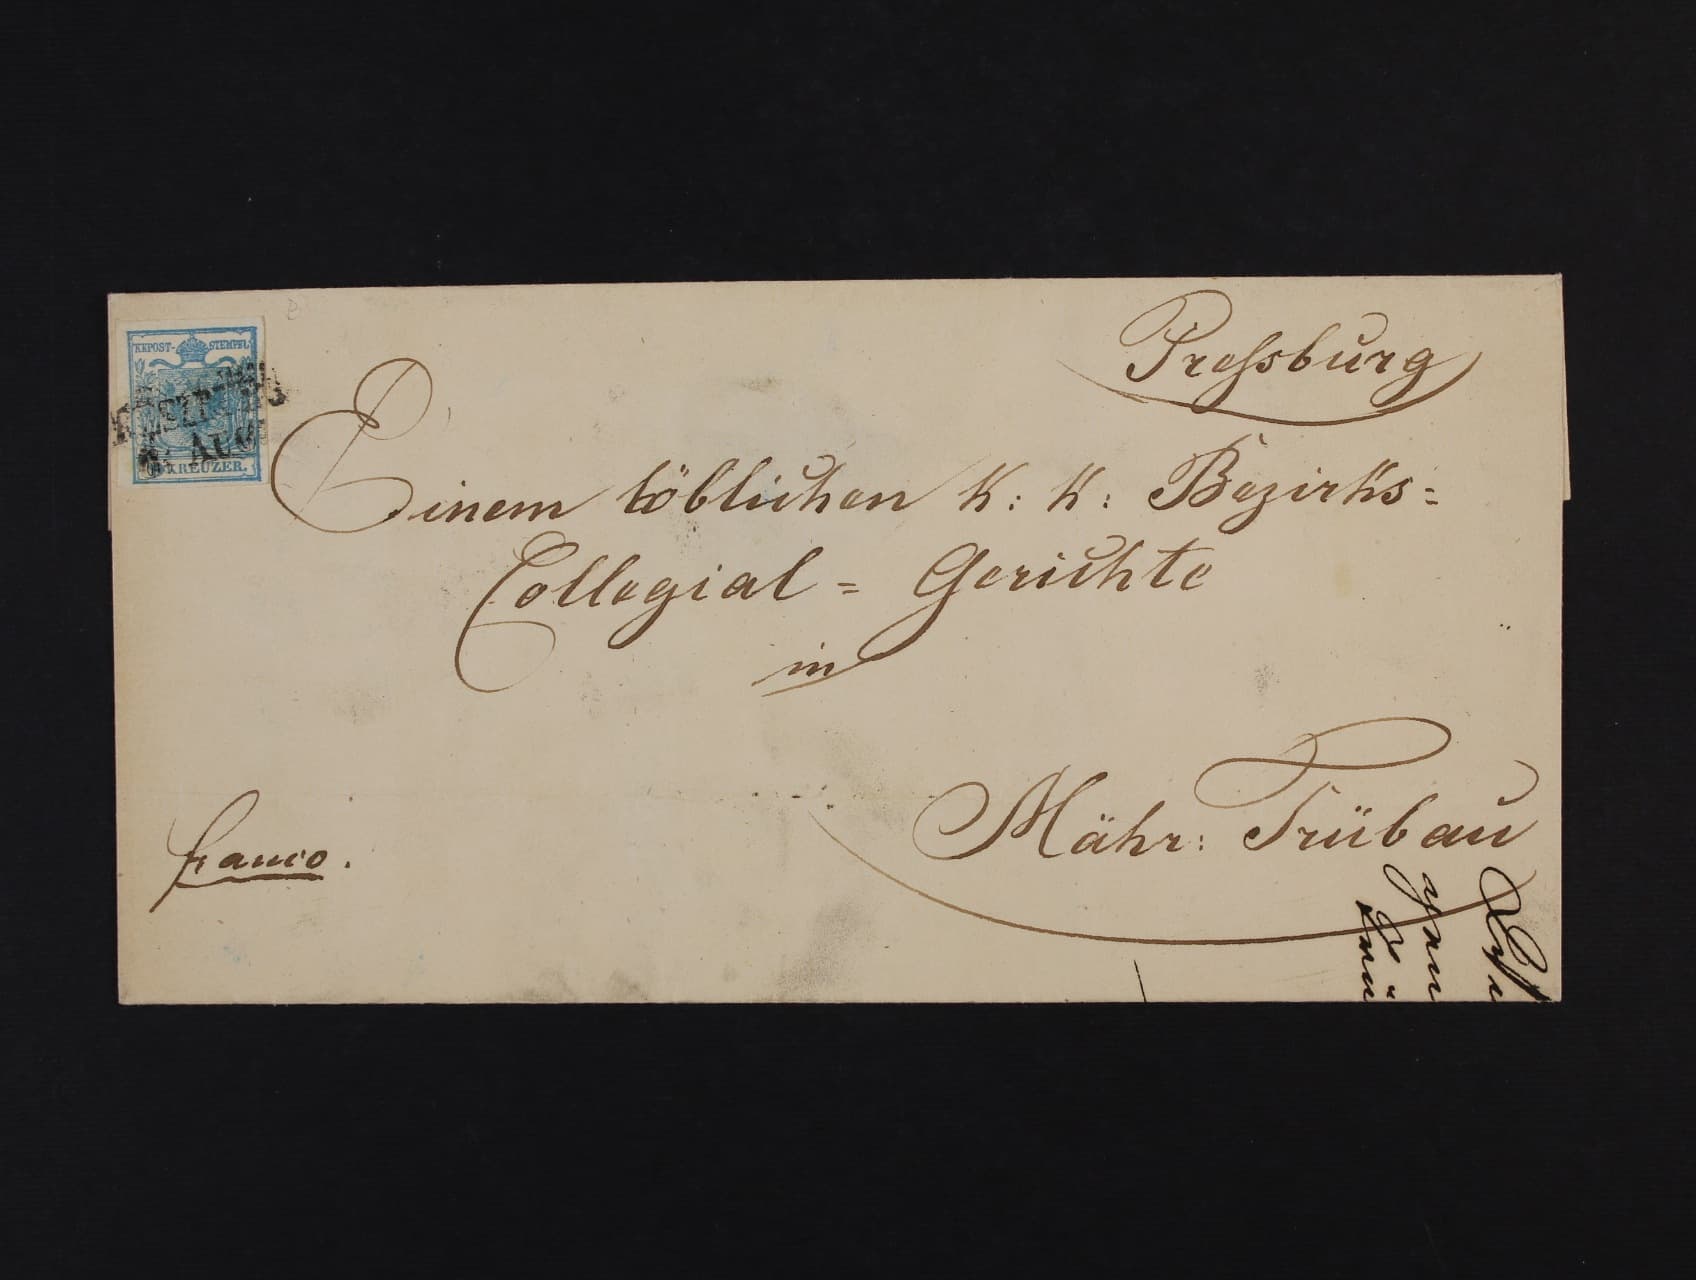 KKPOST-STEMPEL
AUG
KREUZER.
Preſsburg
Einem löblichen K: K: Bezirks=
Collegial = Gerichte
in
Mähr: Trübau
franco.